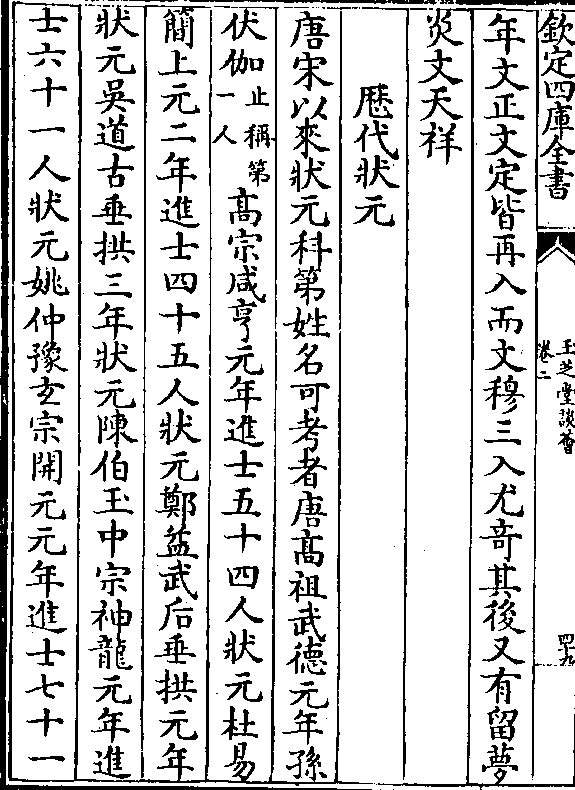 欽定四庫全書
玉芝堂談薈
卷二
四九
年文正文定皆再入而文穆三入尤竒其後又有留夢
炎文天祥
歷代狀元
唐宋以來狀元科第姓名可考者唐髙祖武德元年孫
伏伽止稱第一人髙宗咸亨元年進士五十四人狀元杜易
簡上元二年進士四十五人狀元鄭益武后垂拱元年
狀元吳道古垂拱三年狀元陳伯玉中宗神龍元年進
士六十一人狀元姚仲豫玄宗開元元年進士七十一